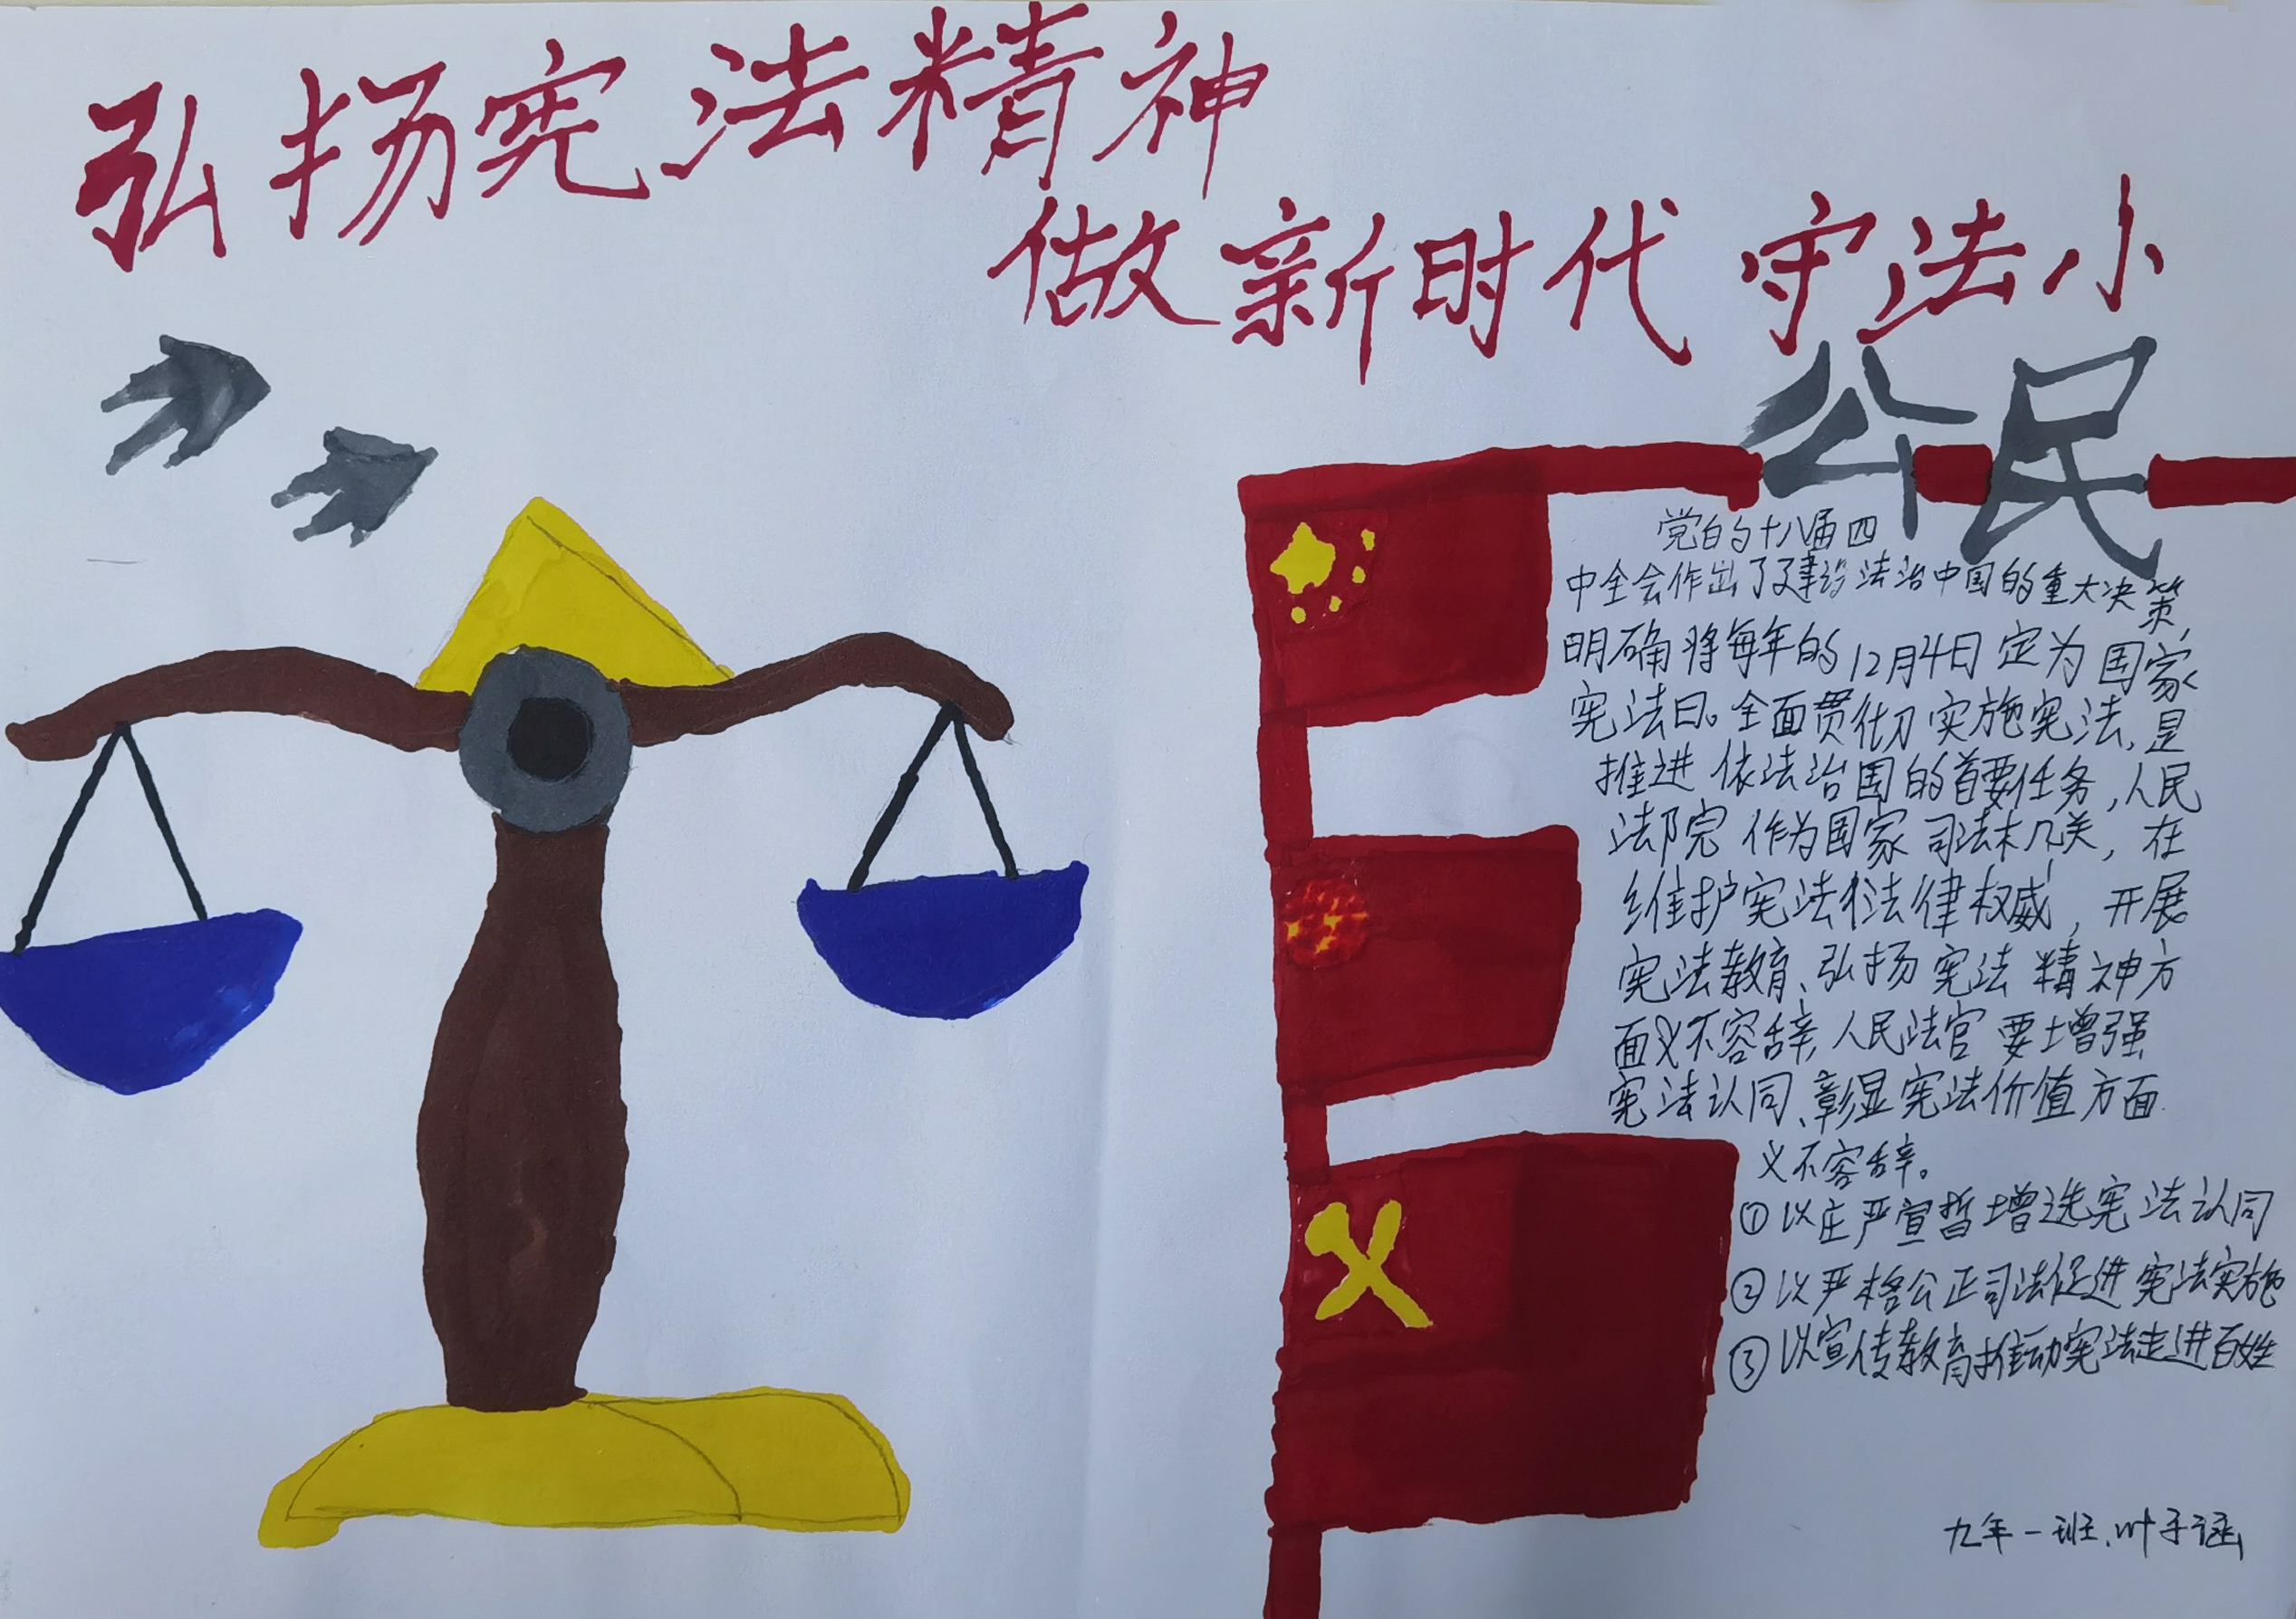 弘扬宪法精神
做新时代守法小
公民
党的十八届四
中全会作出了建设法治中国的重大决策,
明确将每年的12月4日定为国家
宪法日。全面贯彻实施宪法,是
推进依法治国的首要任务,人民
法院作为国家司法机关,在
维护宪法法律权威,开展
宪法教育、弘扬宪法精神方
面义不容辞,人民法官要增强
宪法认同、彰显宪法价值方面
义不容辞。
①以庄严宣誓增选宪法认同
②以严格公正司法促进宪法实施
③以宣传教育推动宪法走进百姓
九年一班.叶子涵